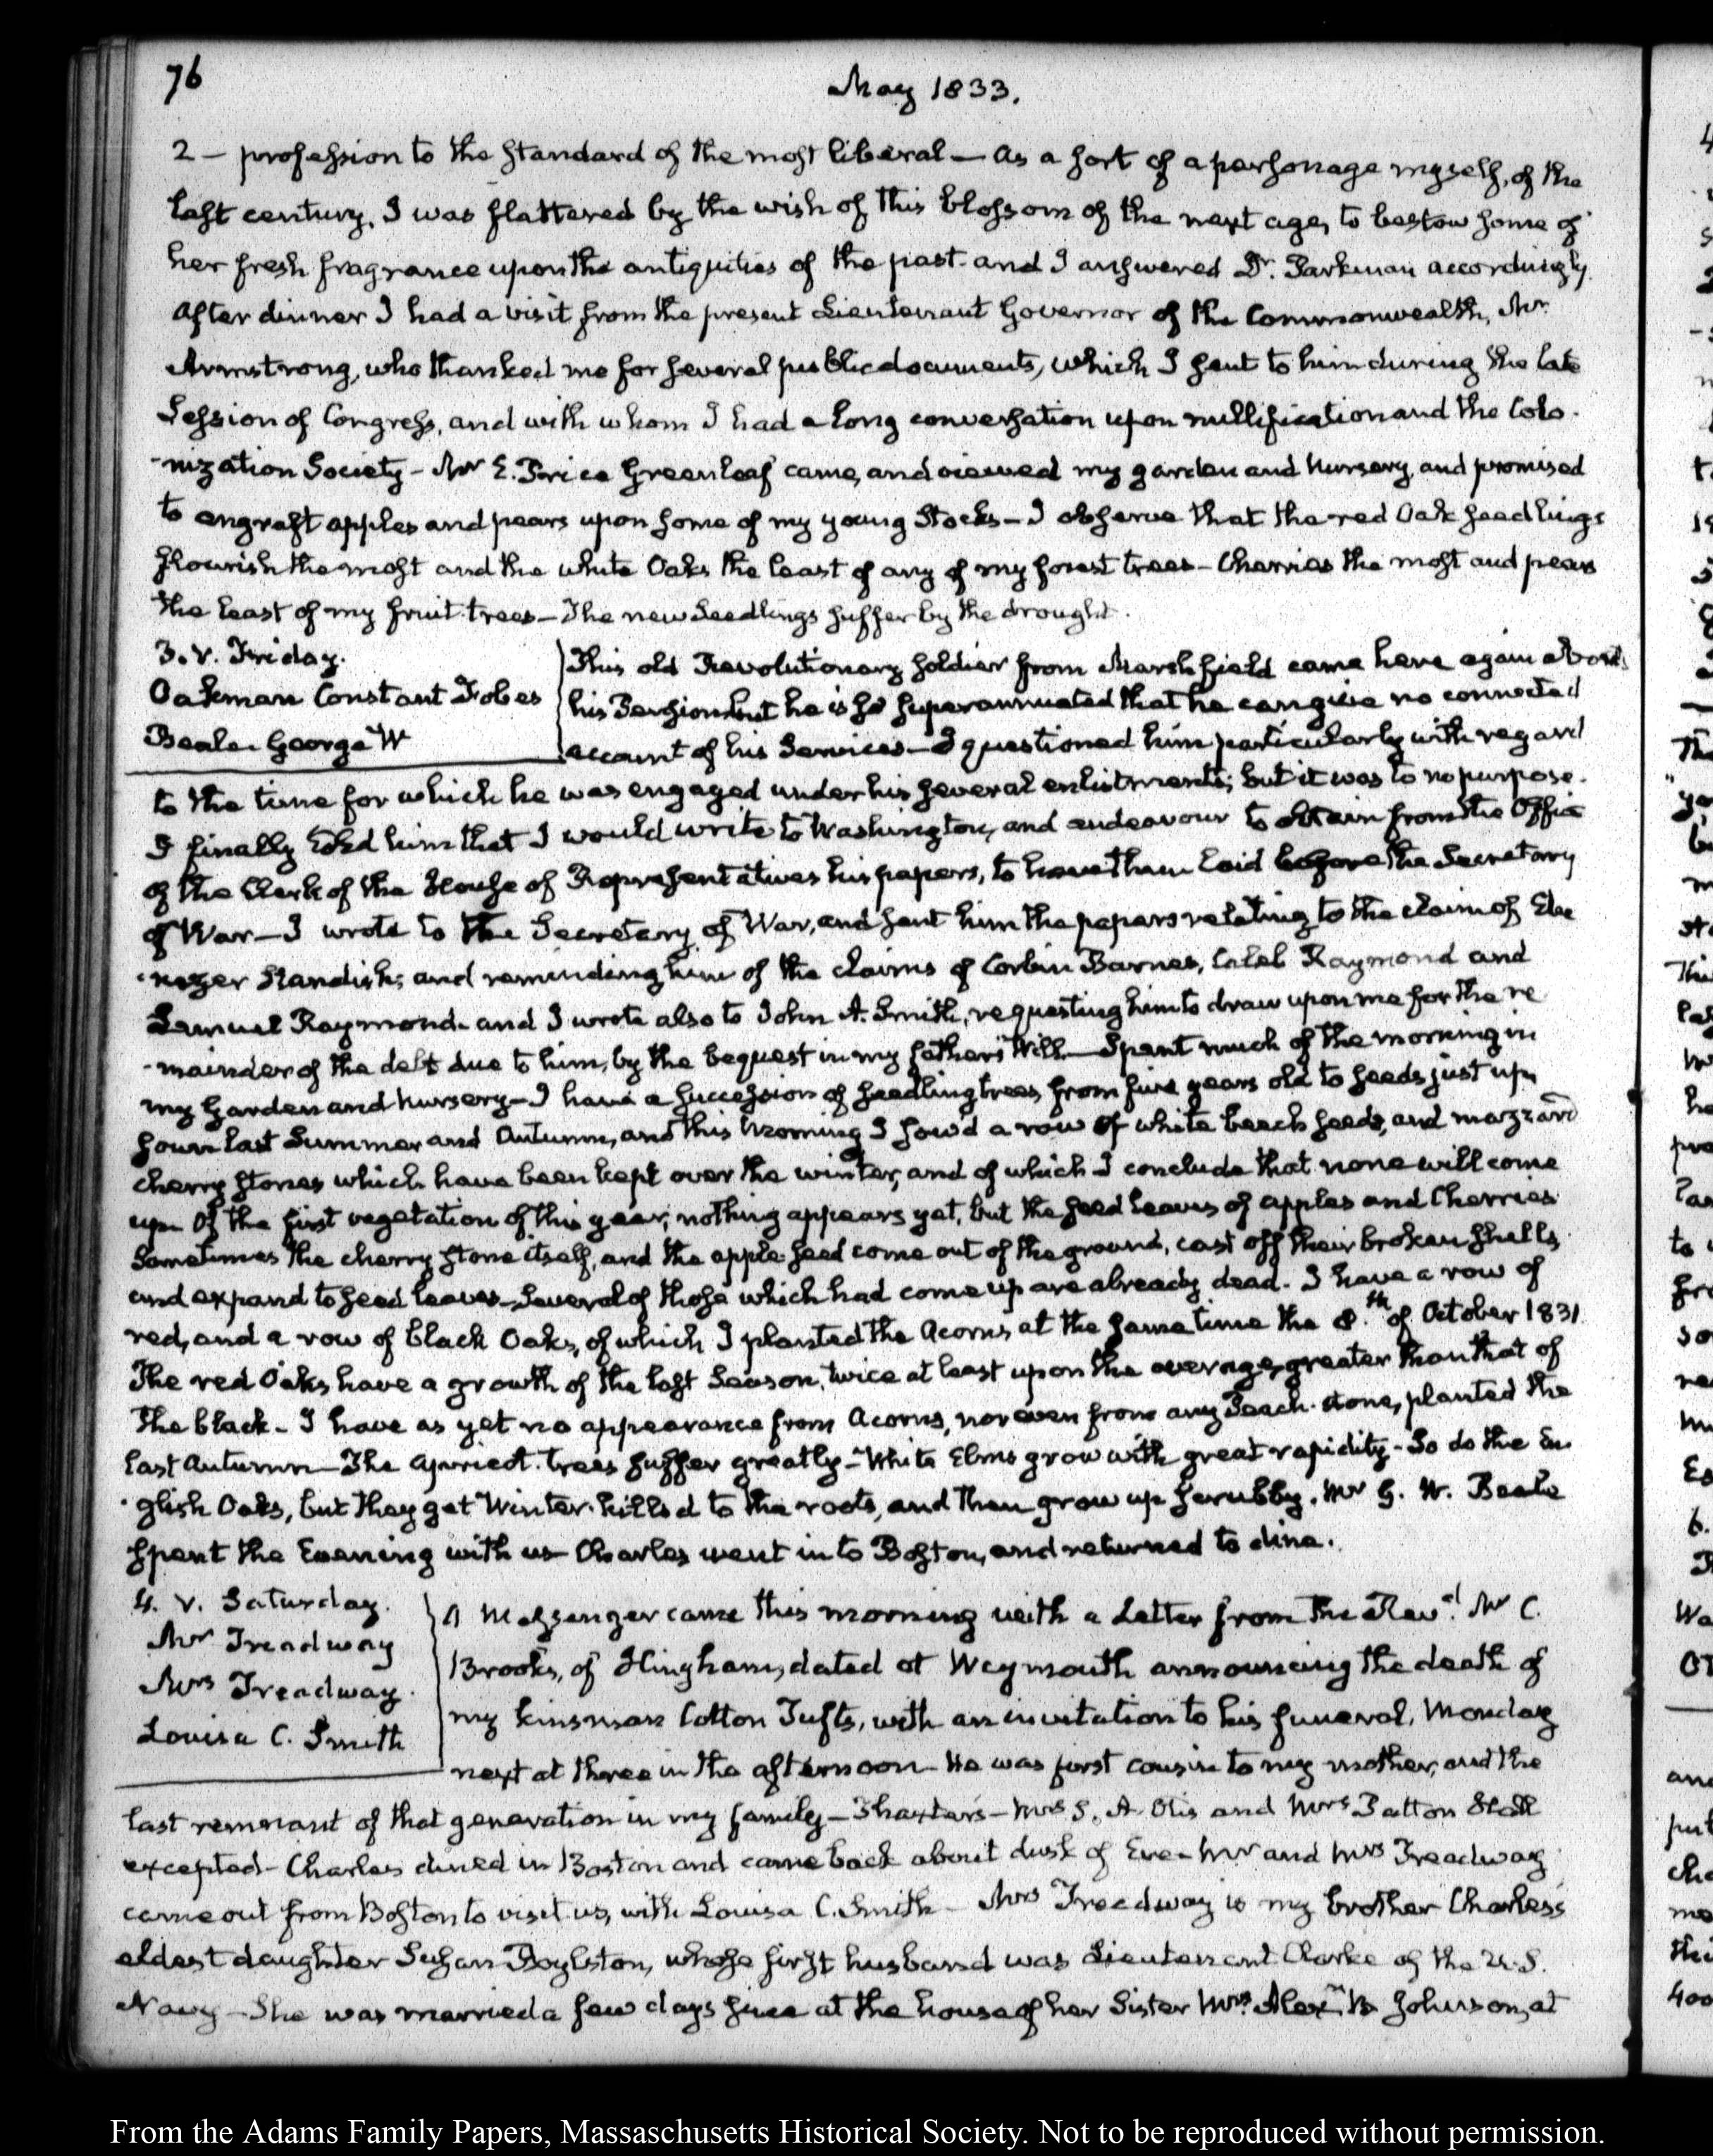 76
May 1833.
2 — profession to the standard of the most liberal — As a sort of a personage myself, of the
last century, I was flattered by the wish of this blossom of the next age, to bestow some of
her fresh fragrance upon the antiquities of the past. and I answered Dr. Parkman accordingly.
After dinner I had a visit from the present Lieutenant Governor of the Commonwealth, Mr.
Armstrong, who thanked me for several public documents, which I sent to him during the late
Session of Congress, and with whom I had a long conversation upon nullification and the Colo-
-nization Society — Mr E. Price Greenleaf came, and viewed my garden and nursery, and promised
to engraft apples and pears upon some of my young Stocks — I observe that the red Oak seedlings
flourish the most and the white Oaks the least of any of my forest trees — Cherries the most and pears
the least of my fruit trees — The new Seedlings suffer by the drought.
3. V. Friday.
Oakman Constant Fobes
Beale. George W
This old Revolutionary soldier from Marshfield came here again about
his Pension but he is so superannuated that he can give no connected
account of his Services — I questioned him particularly with regard
to the time for which he was engaged under his several enlistments; but it was to no purpose.
I finally told him that I would write to Washington, and endeavour to obtain from the Office
of the Clerk of the House of Representatives his papers, to have them laid before the Secretary
of War — I wrote to the Secretary of War, and sent him the papers relating to the claim of Ebe
-nezer Standish; and reminding him of the claims of Corbin Barnes, Caleb Raymond and
Lemuel Raymond. and I wrote also to John A. Smith, requesting him to draw upon me for the re
-mainder of the debt due to him, by the bequest in my father's Will — Spent much of the morning in
my Garden and nursery — I have a succession of seedling trees from five years old to seeds just up,
sown last Summer and Autumn, and this morning I sow'd a row of white beech seeds, and mazzard
cherry stones which have been kept over the winter, and of which I conclude that none will come
up. Of the first vegetation of this year, nothing appears yet, but the seed leaves of apples and Cherries
Sometimes the cherry stone itself, and the apple seed come out of the ground, cast off their broken shells
and expand to seed leaves — Several of those which had come up are already dead. I have a row of
red, and a row of black Oaks, of which I planted the Acorns at the same time the 8.th of October 1831.
The red Oaks have a growth of the last Season, twice at least upon the average, greater than that of
the black — I have as yet no appearance from Acorns, nor even from any Peach stone, planted the
last Autumn — The apricot trees suffer greatly — White Elms grow with great rapidity — So do the En
-glish Oaks, but they get Winter-killed to the roots, and then grow up scrubby. Mr G. W. Beale
spent the Evening with us — Charles went in to Boston, and returned to dine.
4. V. Saturday.
Mr Treadway
Mrs Treadway.
Louisa C. Smith
A Messenger came this morning with a Letter from the Revd. Mr C.
Brooks, of Hingham, dated at Weymouth announcing the death of
my kinsman Cotton Tufts, with an invitation to his funeral, Monday
next at three in the afternoon — He was first cousin to my mother, and the
last remnant of that generation in my family — Thaxters — Mrs S. A. Otis and Mrs
excepted — Charles dined in Boston and came back about dusk of Eve — Mr and Mrs Treadway
came out from Boston to visit us, with Louisa C. Smith — Mrs Treadway is my brother Charles's
eldest daughter Susan Boylston, whose first husband was Lieutenant Clarke of the U.S.
Navy — She was married a few days since at the house of her Sister Mrs. Alexr. B Johnson, at
From the Adams Family Papers, Massaschusetts Historical Society. Not to be reproduced without permission.